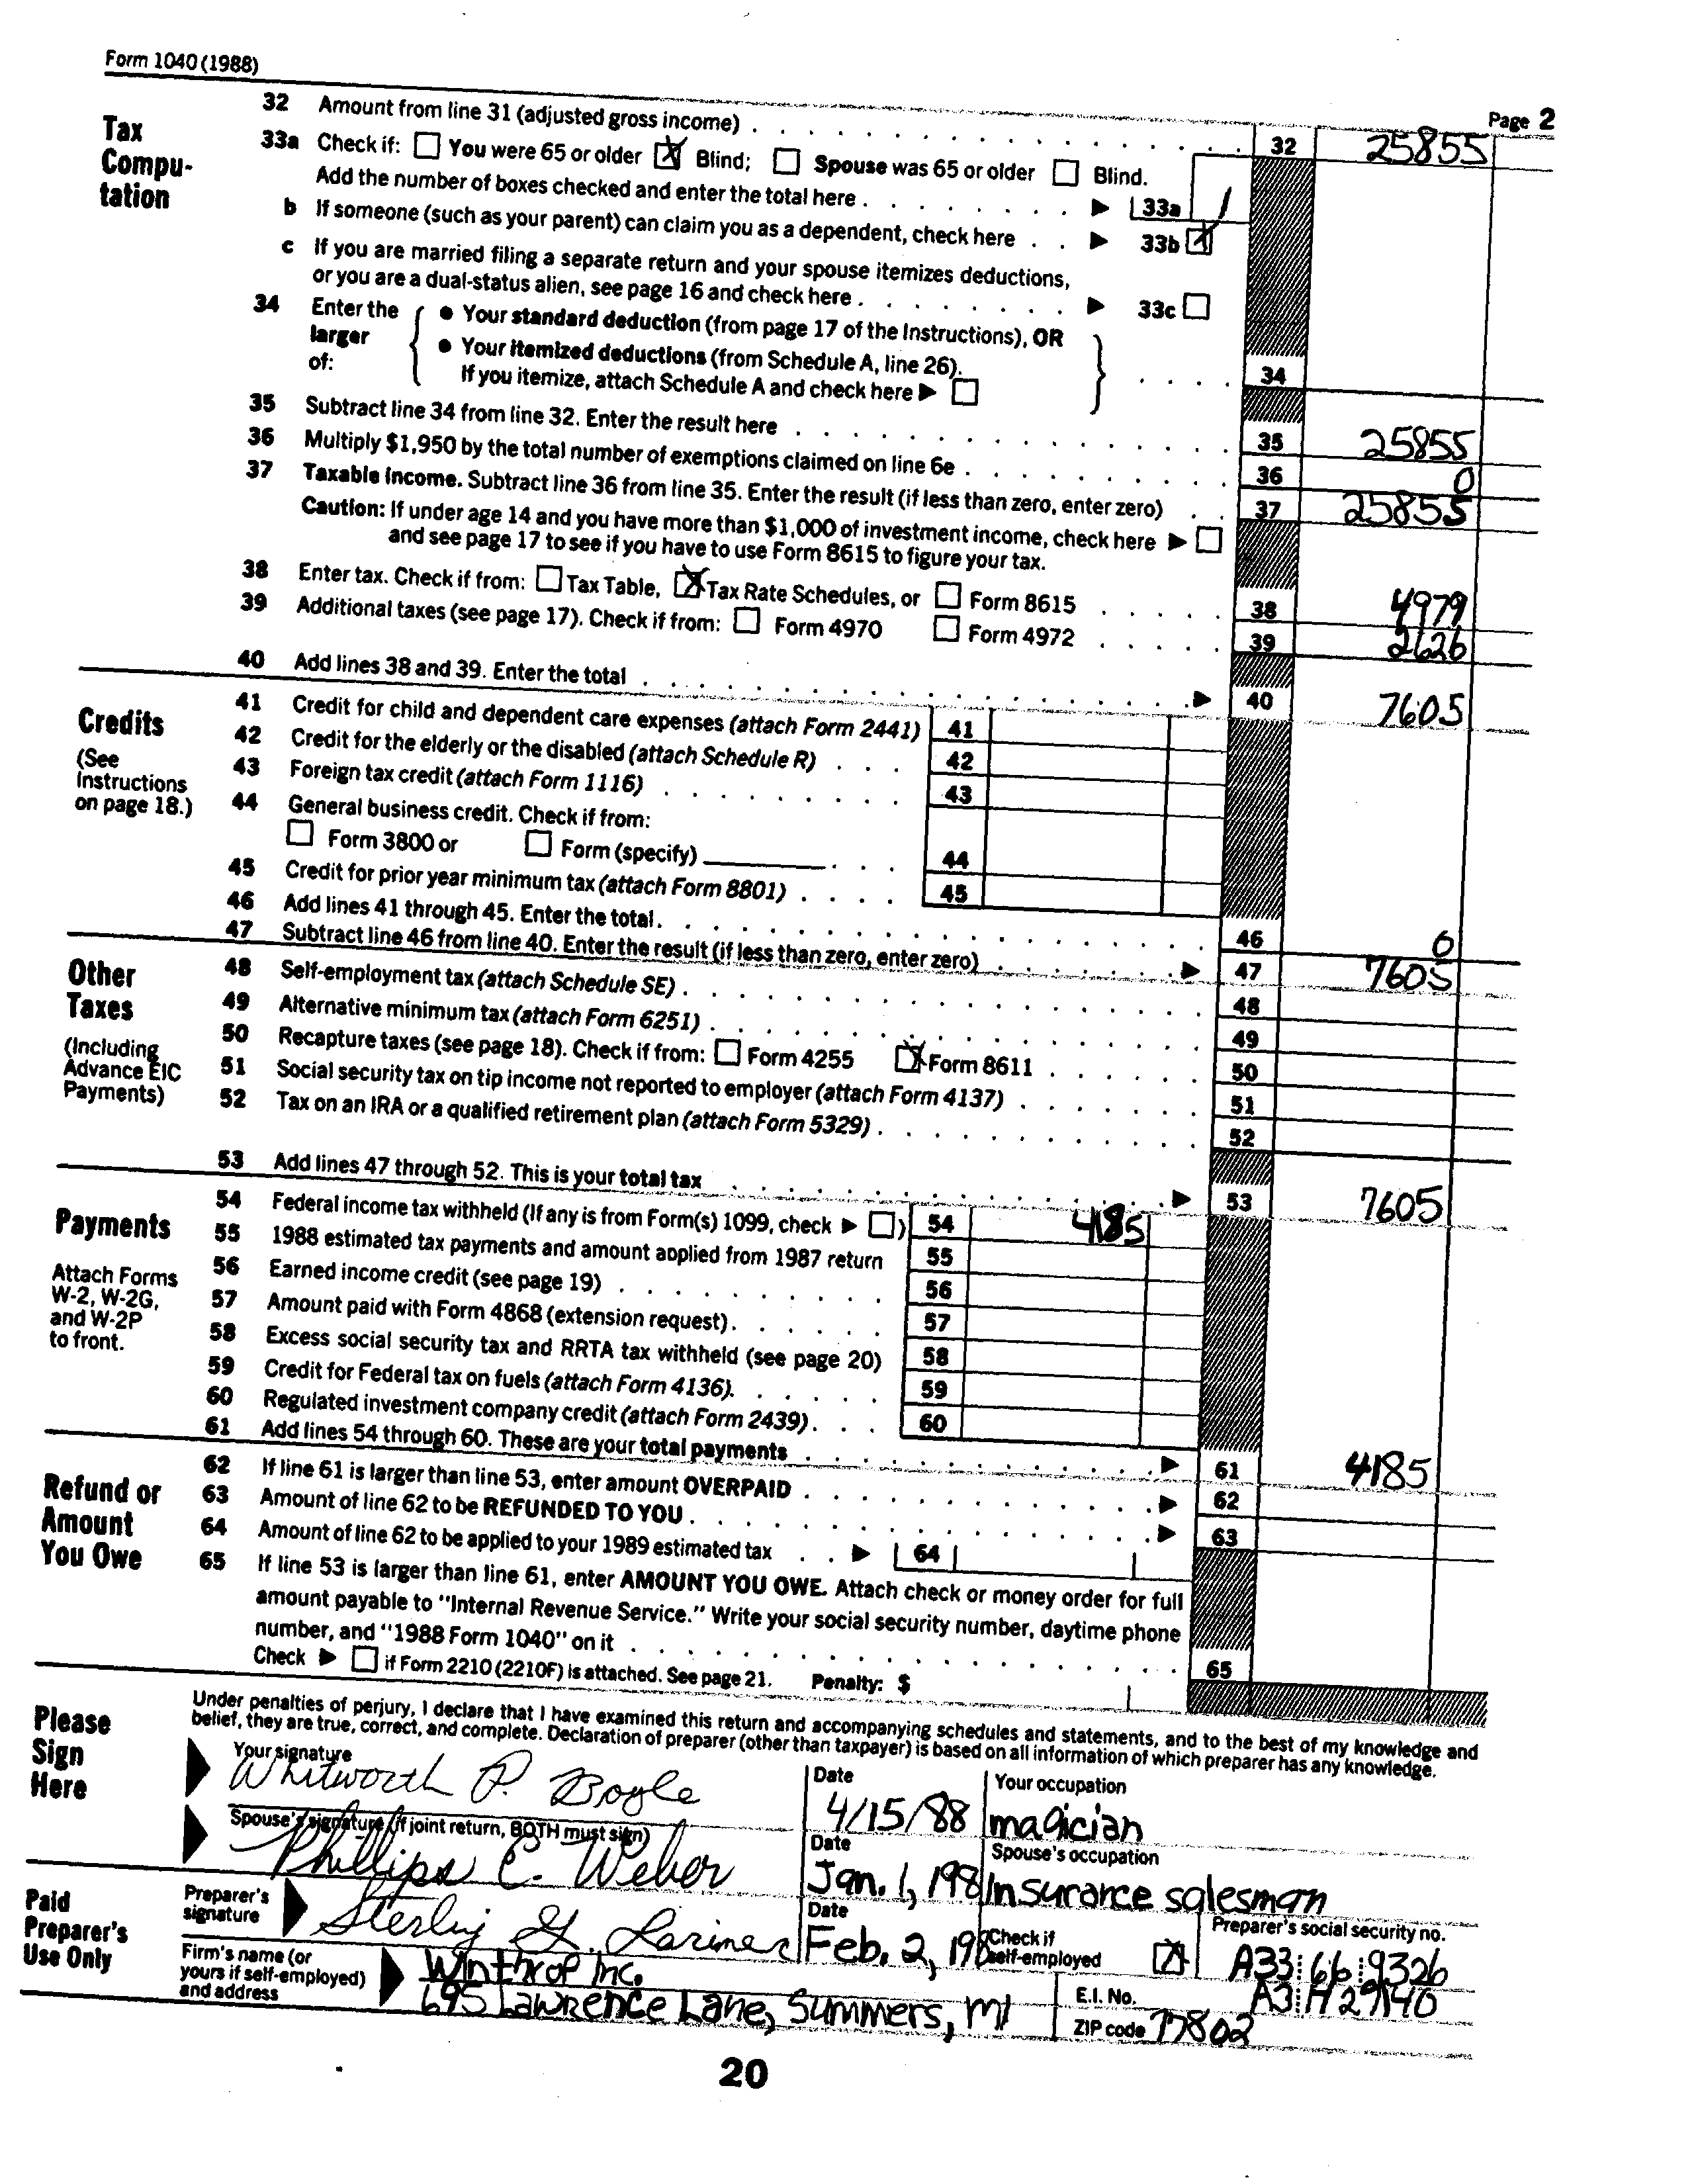 Form 1040 (1988)
Page 2
Tax Compu- tation
32 Amount from line 31 (adjusted gross income) 32 25855
33a Check if: You were 65 or older X Blind; Spouse was 65 or older Blind.
Add the number of boxes checked and enter the total here 33a 1
b If someone (such as your parent) can claim you as a dependent, check here 33b X
c If you are married filing a separate return and your spouse itemizes deductions,
or you are a dual-status alien, see page 16 and check here 33c
34 Enter the larger of:
• Your standard deduction (from page 17 of the Instructions), OR
• Your itemized deductions (from Schedule A, line 26).
If you itemize, attach Schedule A and check here
34
35 Subtract line 34 from line 32. Enter the result here 35 25855
36 Multiply $1,950 by the total number of exemptions claimed on line 6e 36 0
37 Taxable income. Subtract line 36 from line 35. Enter the result (if less than zero, enter zero) 37 25855
Caution: If under age 14 and you have more than $1,000 of investment income, check here
and see page 17 to see if you have to use Form 8615 to figure your tax.
38 Enter tax. Check if from: Tax Table, X Tax Rate Schedules, or Form 8615 38 4979
39 Additional taxes (see page 17). Check if from: Form 4970 Form 4972 39 2626
40 Add lines 38 and 39. Enter the total 40 7605
Credits
(See Instructions on page 18.)
41 Credit for child and dependent care expenses (attach Form 2441) 41
42 Credit for the elderly or the disabled (attach Schedule R) 42
43 Foreign tax credit (attach Form 1116) 43
44 General business credit. Check if from:
Form 3800 or Form (specify) 44
45 Credit for prior year minimum tax (attach Form 8801) 45
46 Add lines 41 through 45. Enter the total. 46 0
47 Subtract line 46 from line 40. Enter the result (if less than zero, enter zero) 47 7605
Other Taxes
(Including Advance EIC Payments)
48 Self-employment tax (attach Schedule SE) 48
49 Alternative minimum tax (attach Form 6251) 49
50 Recapture taxes (see page 18). Check if from: Form 4255 X Form 8611 50
51 Social security tax on tip income not reported to employer (attach Form 4137) 51
52 Tax on an IRA or a qualified retirement plan (attach Form 5329) 52
53 Add lines 47 through 52. This is your total tax 53 7605
Payments
Attach Forms W-2, W-2G, and W-2P to front.
54 Federal income tax withheld (If any is from Form(s) 1099, check ) 54 4185
55 1988 estimated tax payments and amount applied from 1987 return 55
56 Earned income credit (see page 19) 56
57 Amount paid with Form 4868 (extension request) 57
58 Excess social security tax and RRTA tax withheld (see page 20) 58
59 Credit for Federal tax on fuels (attach Form 4136). 59
60 Regulated investment company credit (attach Form 2439) 60
61 Add lines 54 through 60. These are your total payments 61 4185
Refund or Amount You Owe
62 If line 61 is larger than line 53, enter amount OVERPAID 62
63 Amount of line 62 to be REFUNDED TO YOU 63
64 Amount of line 62 to be applied to your 1989 estimated tax 64
65 If line 53 is larger than line 61, enter AMOUNT YOU OWE. Attach check or money order for full
amount payable to "Internal Revenue Service." Write your social security number, daytime phone
number, and "1988 Form 1040" on it 65
Check if Form 2210 (2210F) is attached. See page 21. Penalty: $
Please Sign Here
Under penalties of perjury, I declare that I have examined this return and accompanying schedules and statements, and to the best of my knowledge and
belief, they are true, correct, and complete. Declaration of preparer (other than taxpayer) is based on all information of which preparer has any knowledge.
Your signature Date Your occupation
Whitworth P. Boyle 4/15/88 magician
Spouse's signature (if joint return, BOTH must sign) Date Spouse's occupation
Phillipa C. Weber Jan. 1, 198 Insurance salesman
Paid Preparer's Use Only
Preparer's signature Date Check if self-employed X Preparer's social security no.
Feb. 2, 198 A33 66 9326
Firm's name (or yours if self-employed) and address
Winthrop Inc. E.I. No.
695 Lawrence Lane, Summers, MI ZIP code
20